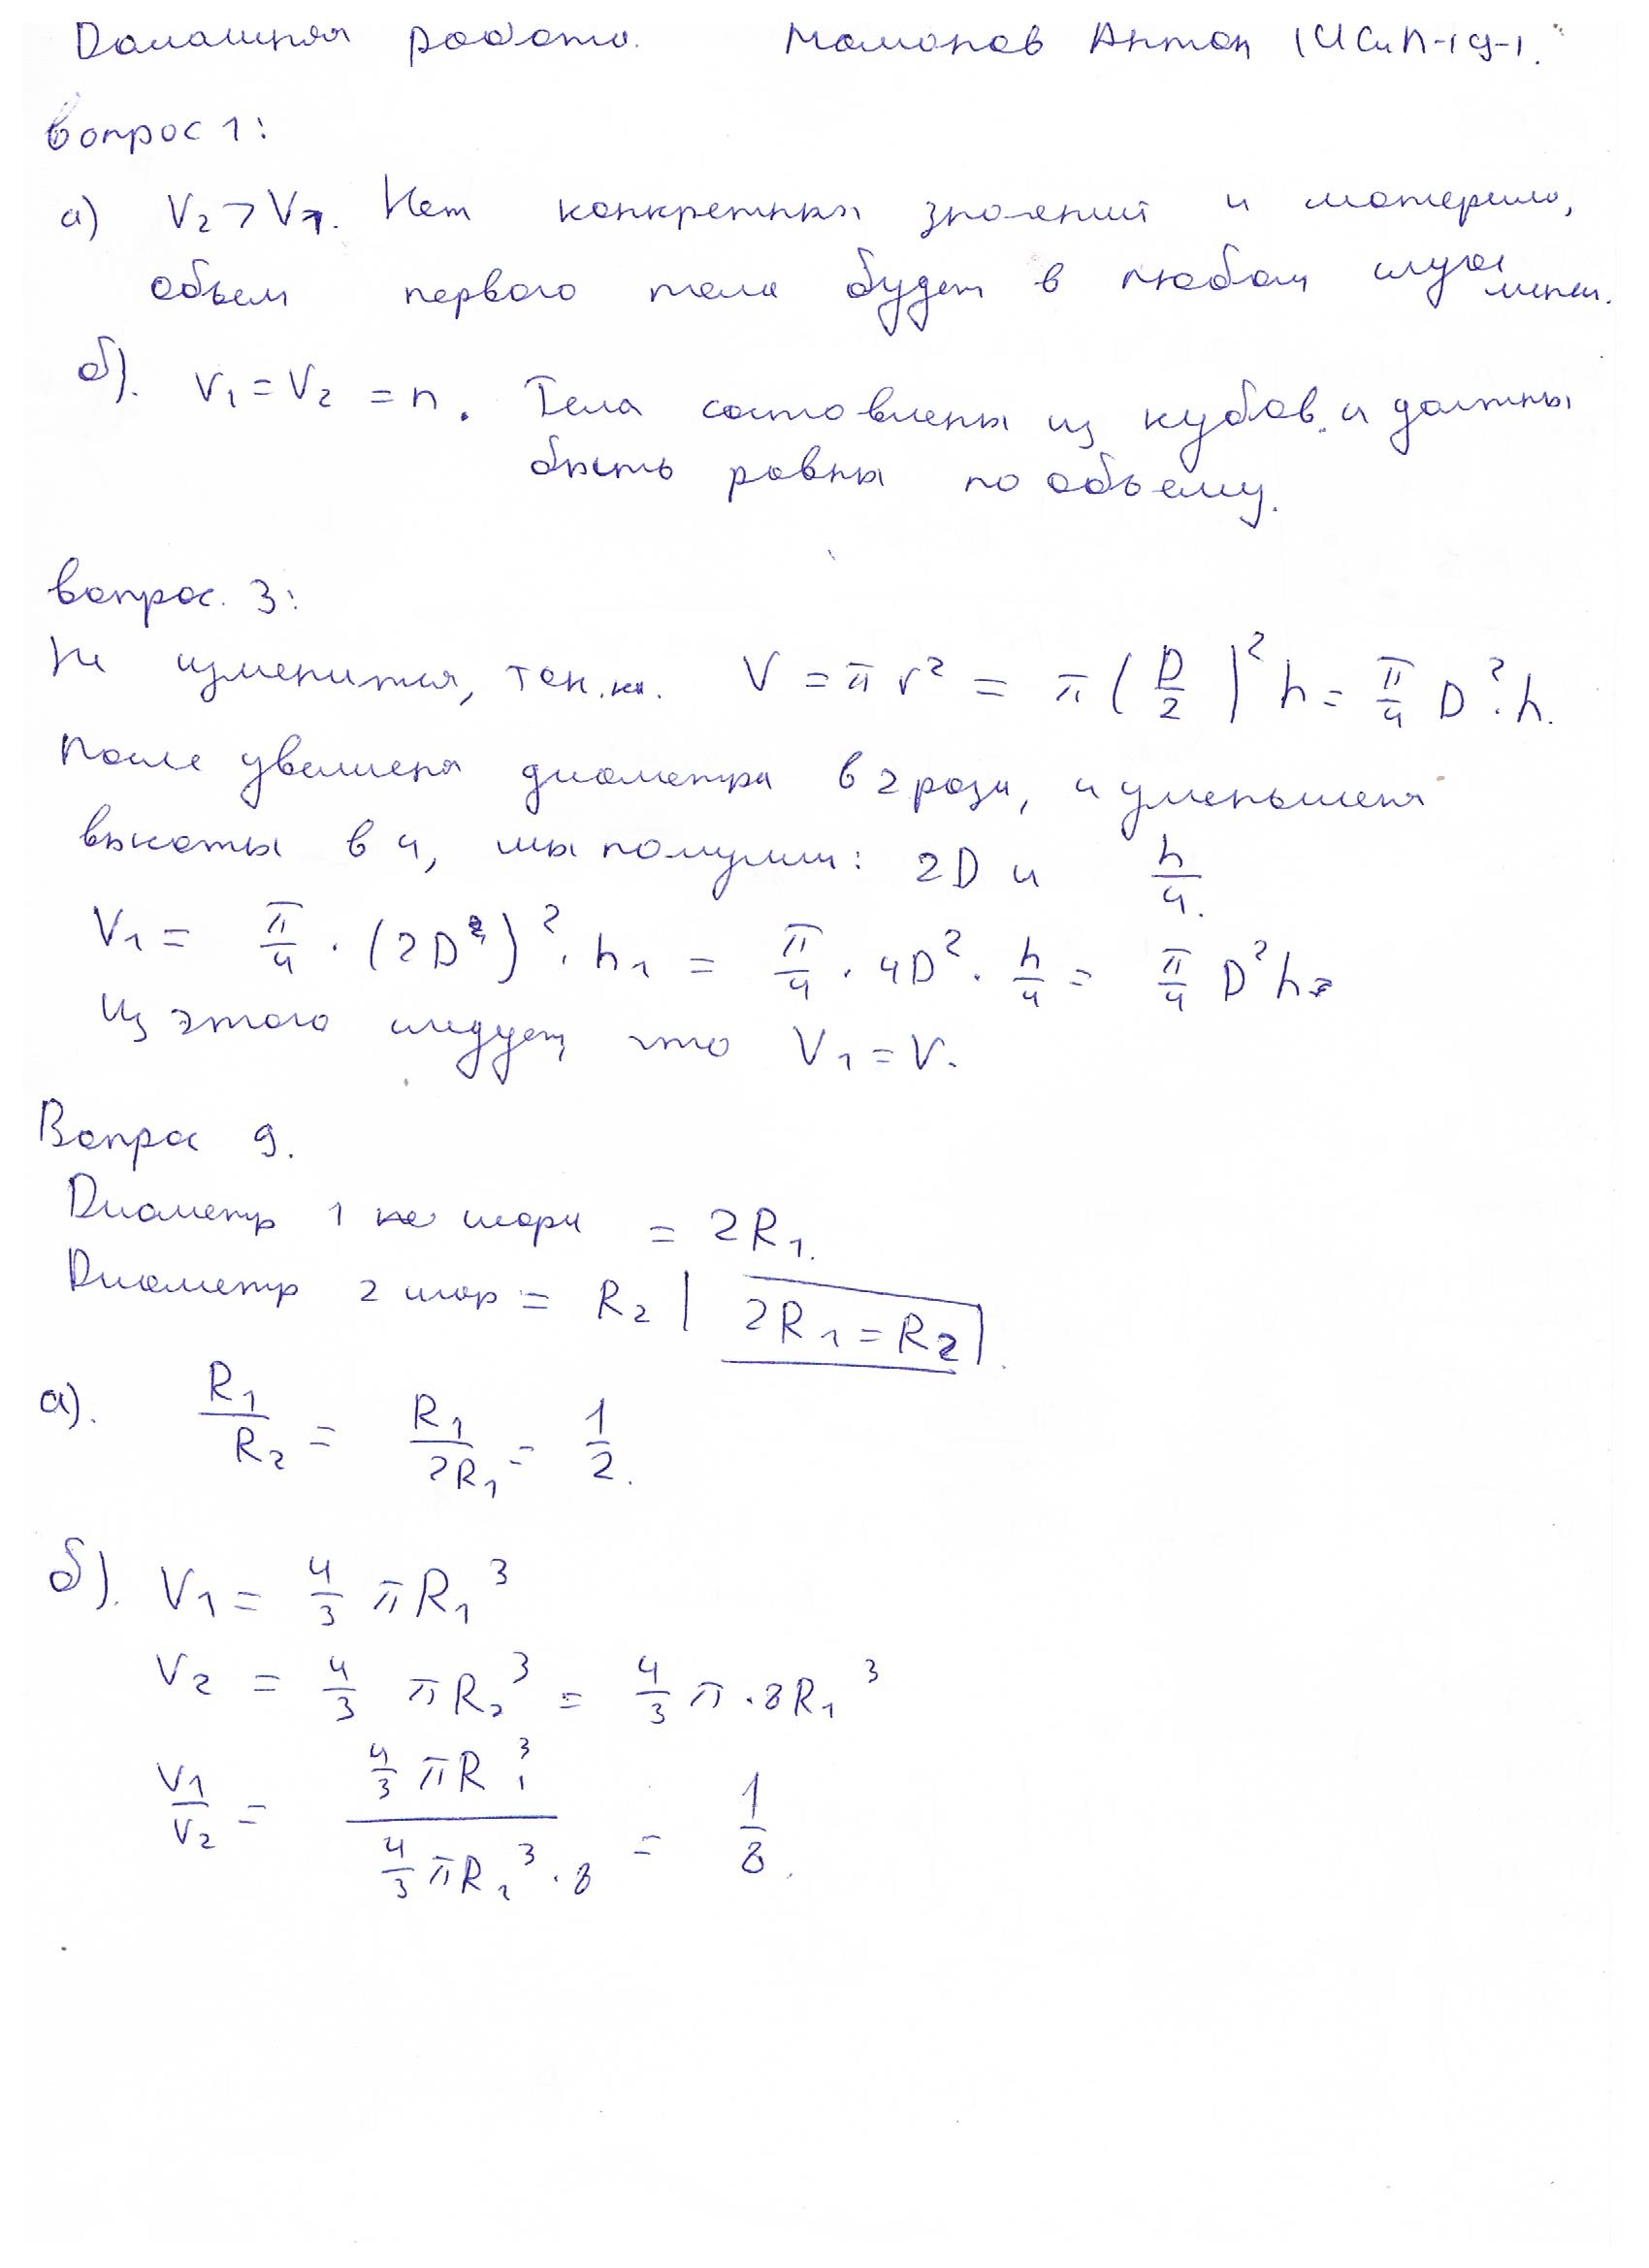 Домашняя работа. Мамонов Антон ИСиП-19-1.
Вопрос 1:
а) V₂ > V₁. Нет конкретных значений и материала,
объем первого тела будет в любом случае
меньше.
б). V₁ = V₂ = n. Тела составлены из кубов и должны
быть равны по объему.
Вопрос. 3:
Не изменится, так. как. V = π r² = π (D/2)² h = π/4 D² · h.
После увеличения диаметра в 2 раза, и уменьшения
высоты в 4, мы получим: 2D и h/4.
V₁ = π/4 · (2D)² · h₁ = π/4 · 4D² · h/4 = π/4 D² h
Из этого следует, что V₁ = V.
Вопрос 9.
Диаметр 1 шара = 2R₁.
Диаметр 2 шар = R₂ | 2R₁ = R₂
а). R₁/R₂ = R₁/2R₁ = 1/2.
б). V₁ = 4/3 πR₁³
V₂ = 4/3 πR₂³ = 4/3 π · 8R₁³
V₁/V₂ = (4/3 πR₁³)/(4/3 πR₂³ · 8) = 1/8.